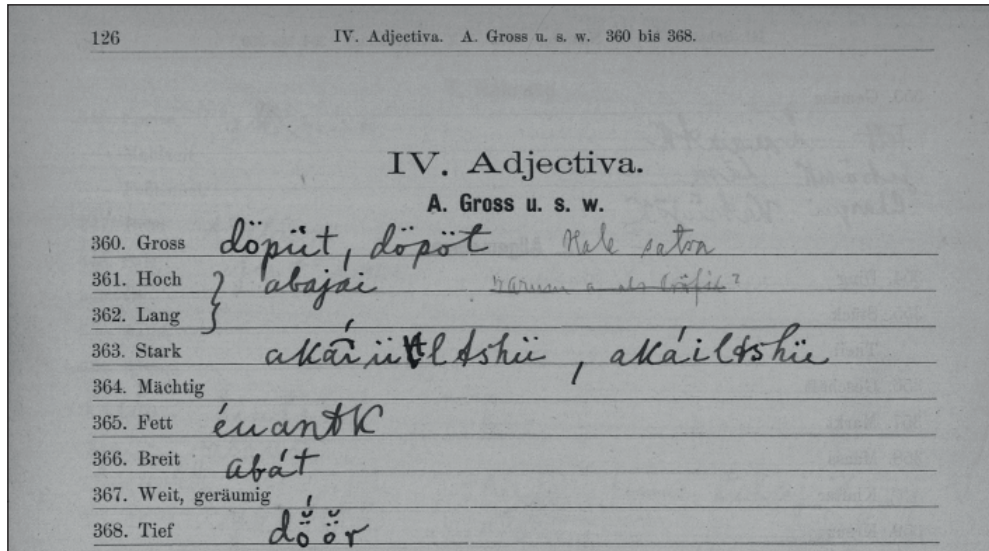 126 IV. Adjectiva. A. Gross u. s. w. 360 bis 368.
IV. Adjectiva.
A. Gross u. s. w.
360. Gross döpüt, döpöt
361. Hoch } abajái
362. Lang
363. Stark , akáiltshü
364. Mächtig
365. Fett éuantK
366. Breit abát
367. Weit, geräumig
368. Tief